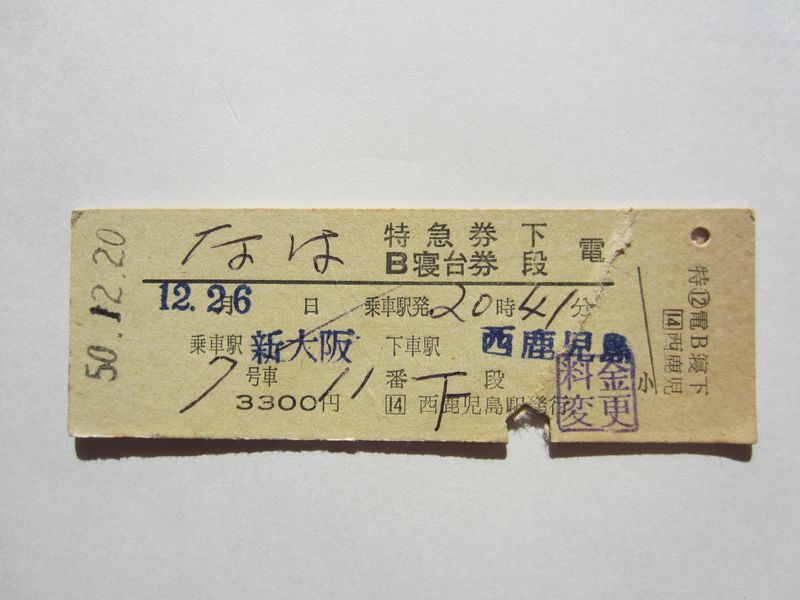 50.12.20
なは 特急券 下 電
B寝台券 段
12.26 月 日 乗車駅発 20 時 41 分
乗車駅 新大阪 下車駅 西鹿児島
7 号車 11 番 下 段
3300円 14 西鹿児島駅発行
料金
変更
小
特⑫電B寝下
14 西鹿児